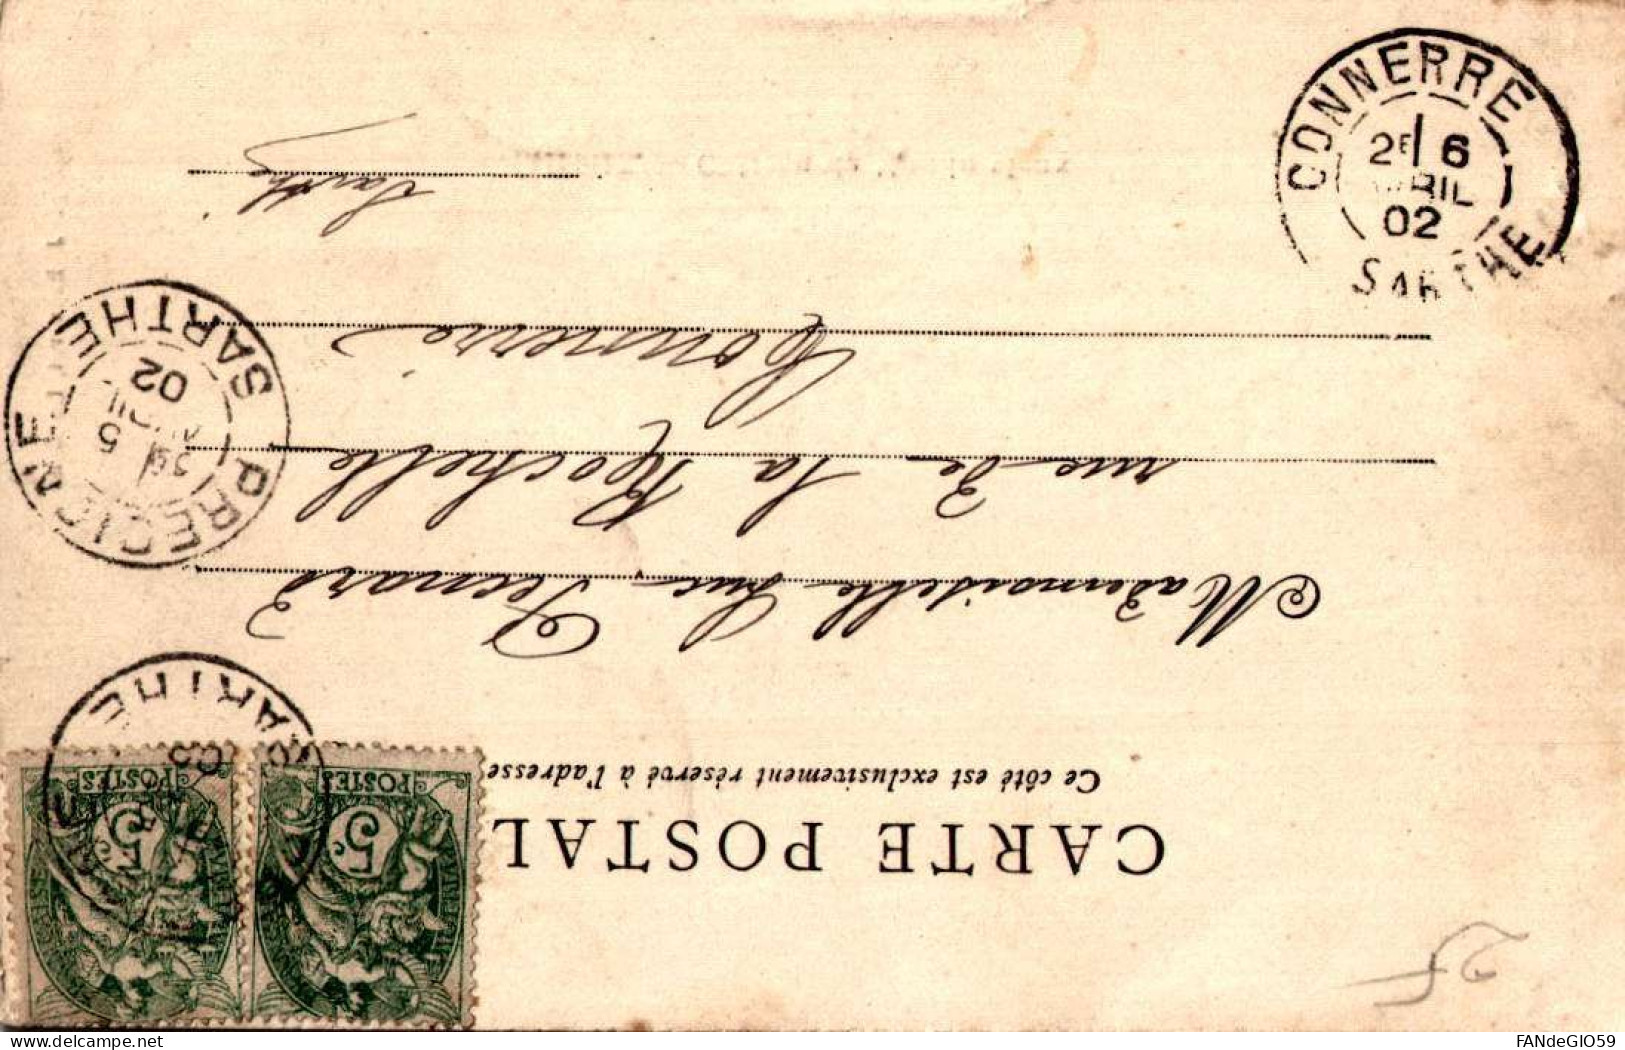 CARTE POSTAL
Ce côté est exclusivement réservé à l'adresse
POSTES
5c
POSTES
5c
SARTHE
Mademoiselle
rue de la Rochelle
Connerré
Sarthe
PRECIGNE
5
02
SARTHE
CONNERRE
2E 6
AVRIL
02
SARTHE
2F
FANdeGIO59